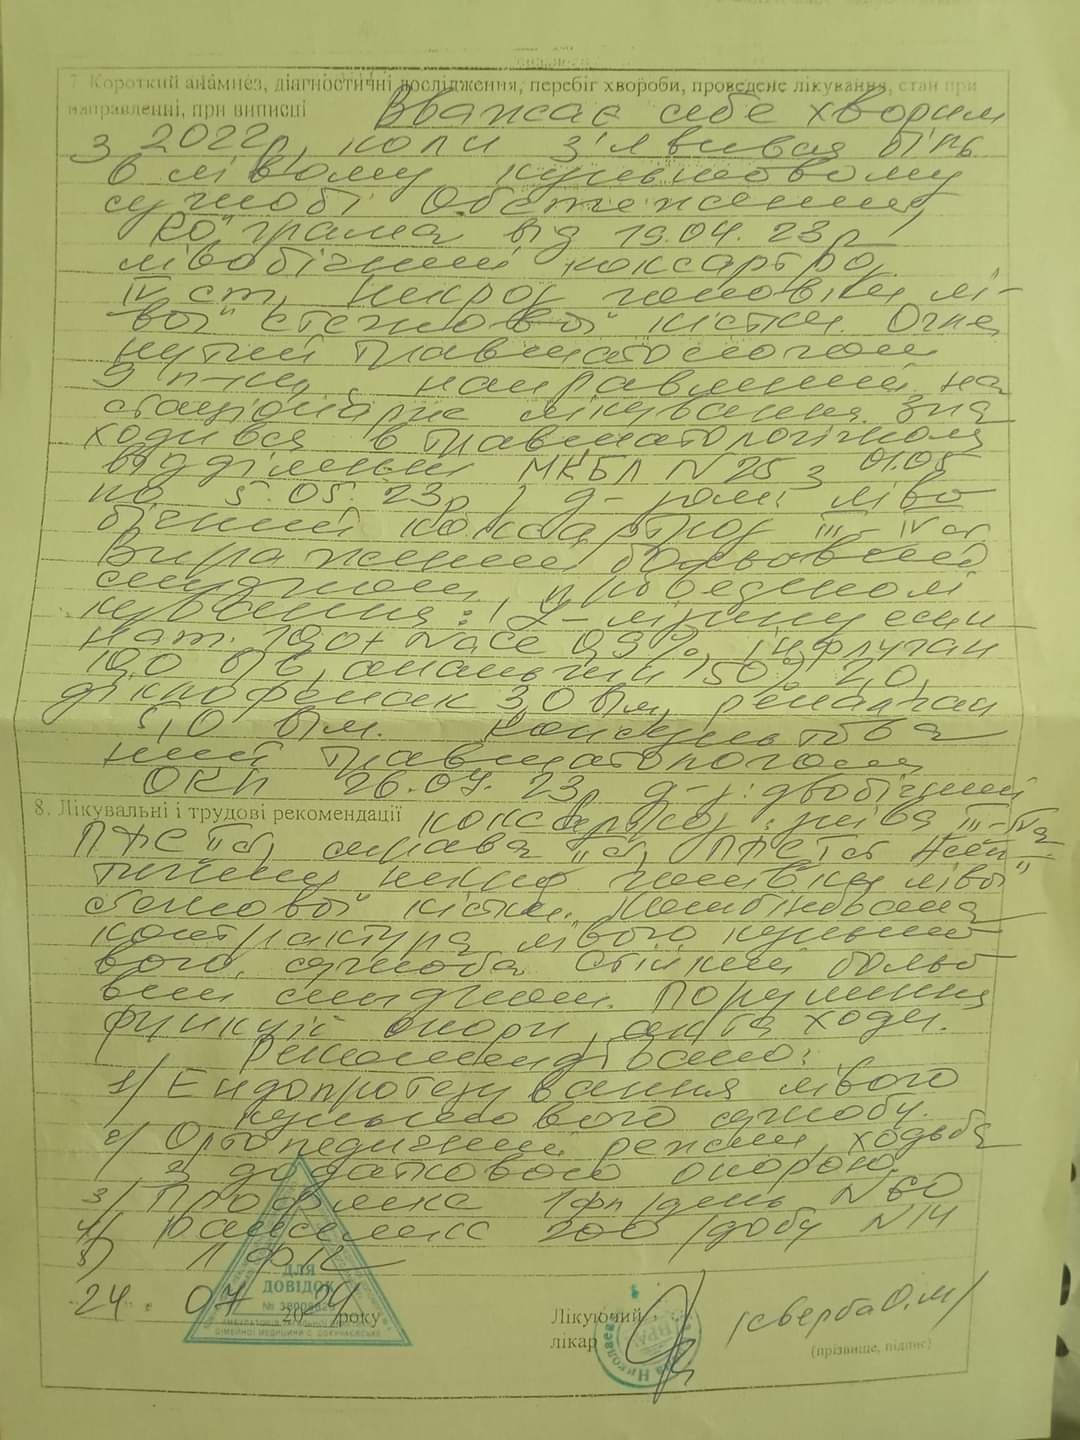 7. Короткий анамнез, діагностичні дослідження, перебіг хвороби, проведене лікування, стан при
направленні, при виписці Вважає себе хворим
з 2022р, коли з'явився біль
в лівому кульшовому
суглобі Обстеження,
від 19.04.23р
лівобічний коксартроз
IV ст, некроз головки лі-
вої стегнової кістки. Огля
нутий травматологом
направлений на
стаціонарне лікування. Зна
ходився в травматологічном
відділенні МКБЛ N25 з 01.05
по 5.05.23р, д-ром: ліво
бічний коксартроз III-IV ст
Виражений больовий
синдром, проведеном
лікування: L-лізину есци-
нат. 10,0+ NaCe 0,9%, інфулган
в/в, анальгін 50% 2,0,
диклофенак 3,0 в/м,
5,0 в/м. Консультова
ний травматологом
ОКЛ 26.07.23р д-з: двобічний
8. Лікувальні і трудові рекомендації коксартроз: зліва III-IV ст
ПФС II ст, справа II ст, ПФС I ст Асеп-
тичний некроз головки лівої
стегнової кістки. Комбінована
контрактура лівого кульшо
вого суглоба Стійкий больо
вий синдром. Порушення
функції опори, акта ходи.
Рекомендовано:
1/ Ендопротезування лівого
кульшового суглобу.
2/ Ортопедичний режим, ходьба
з додатковою опорою.
3/ 1фл/день N60
4/ 200 /добу N14
5/ ЛФК
24. 07 2024 року
ДЛЯ
ДОВІДОК
СІМЕЙНОЇ МЕДИЦИНИ С. ДОКУЧАЄВСЬКЕ
Лікуючий
лікар
/Сверба О.М/
(прізвище, підпис)